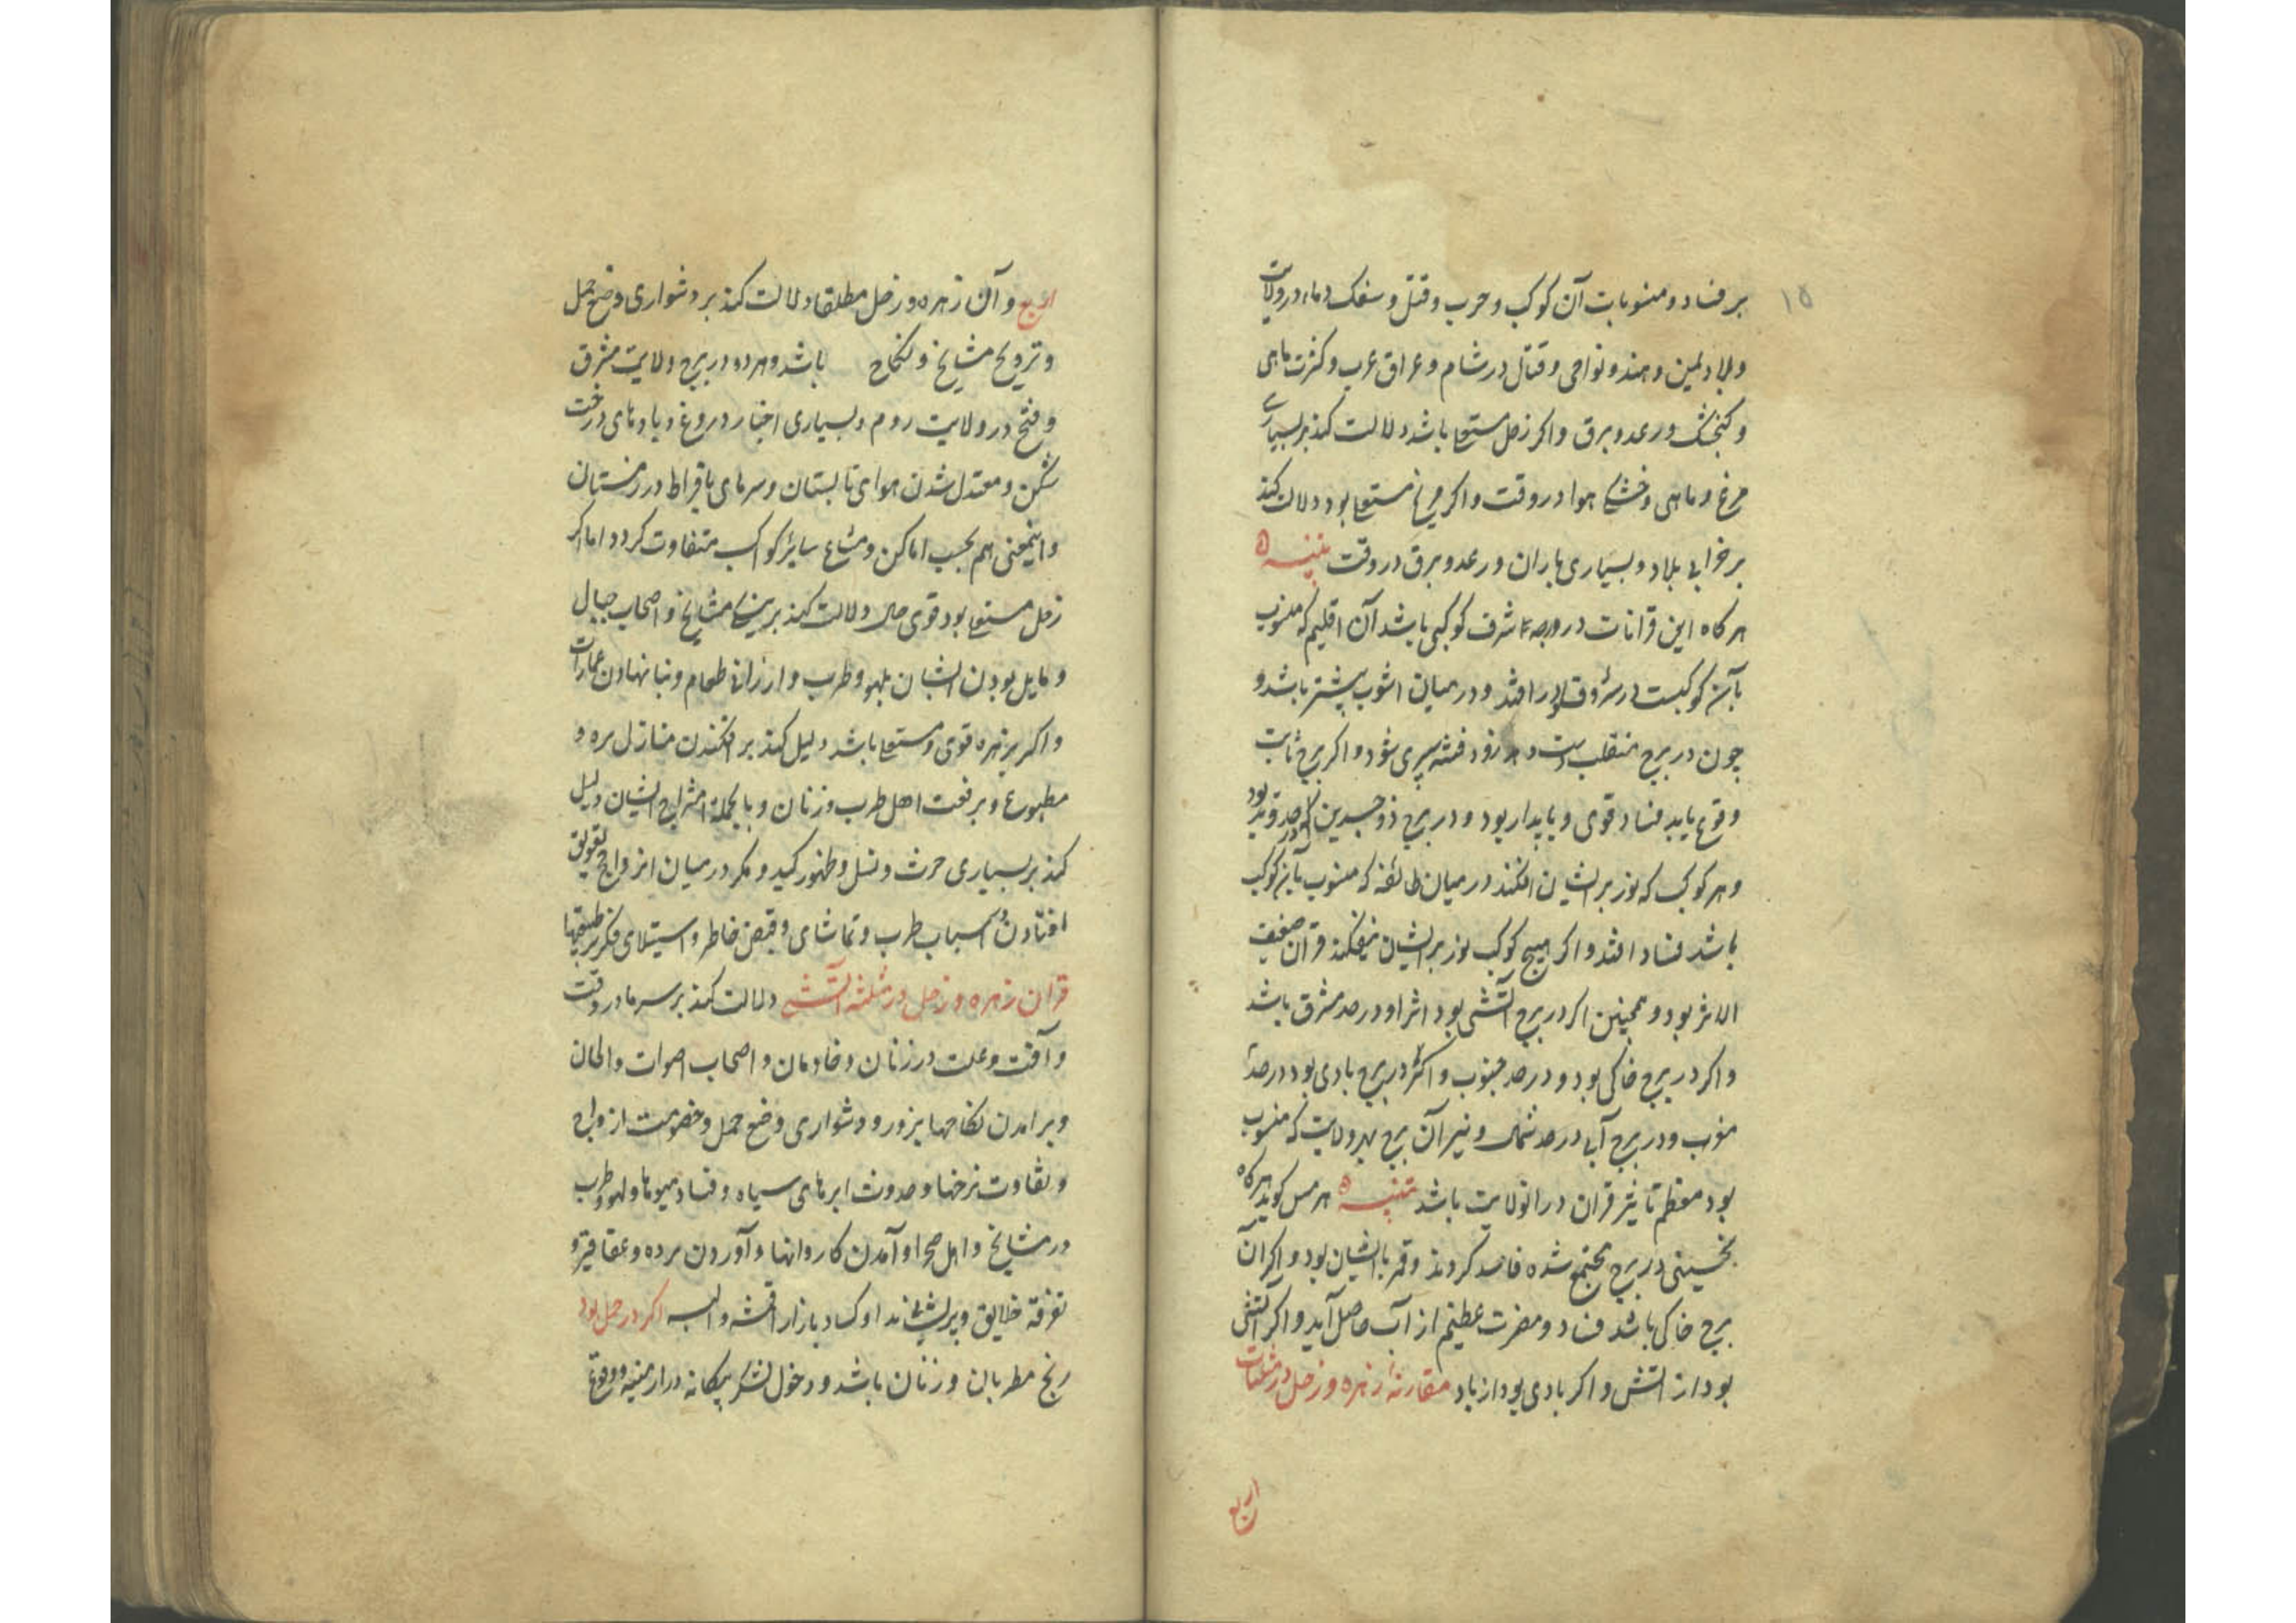 ۱۵
بر فساد و منسوبات آن کوکب و حرب و قتل و سفک دماء در ولایت
و بلاد یمن و هند و نواحی و قتال در شام و عراق عرب و کثرت ماهی
و کنجشک و رعد و برق و اکر زحل مستعلی باشد دلالت کند بر بسیاری
مرغ و ماهی و خشکی هوا در وقت و اکر مریخ مستعلی بود دلالت کند
بر خرابی بلاد و بسیاری باران و رعد و برق در وقت تنبیه
هر کاه این قرانات در درجه شرف کوکبی باشد آن اقلیم که منسوب
بآن کوکبست در افتد و در میان اشوب بیشتر باشد و
چون در برج منقلب زود فتنه سپری شود و اکر برج ثابت
وقوع یابد فساد قوی و پایدار بود و در برج ذو جسدین
و هر کوکب که نور بر ایشان افکند در میان طائفه که منسوب بآن کوکب
باشد فساد افتد و اکر هیچ کوکب نور بر ایشان نیفکند قران ضعیف
الاثر بود و همچنین اکر در برج آتشی بود اثر او در حد مشرق باشد
و اکر در برج خاکی بود و در حد جنوب و اکر در برج بادی بود در حد
مغرب و در برج آبی در حد شمال و نیز آن برج بهر ولایت که منسوب
بود معظم تاثیر قران در انولایت باشد تنبیه هرمس کوید هر کاه
نحسین در برج مجتمع شده فاسد کردند و قمر با ایشان بود و اکر آن
برج خاکی باشد فساد و مضرت عظیم از آب حاصل آید و اکر آتشی
بود از آتش و اکر بادی بود از باد مقارنهٔ زهره و زحل در مثلثات
اربع
اربع و آن زهره و زحل مطلقا دلالت کند بر دشواری وضع حمل
و ترویج مشایخ و نکاح باشد و هر دو در برج ولایت مشرق
و فتح در ولایت روم و بسیاری اخبار دروغ و بادهای درخت
شکن و معتدل شدن هوای تابستان و سرمای بافراط در زمستان
و اینمعنی هم بحسب اماکن و سایر کواکب متفاوت کردد اما اکر
زحل مستعلی بود قوی حال دلالت کند بر نیکی مشایخ و اصحاب جبال
و مایل بودن ایشان بلهو و طرب و ارزانی طعام و بنا نهادن عمارات
و اکر زهره قوی و مستعلی باشد دلیل کند بر افکندن منازل و
مطبوع و بر رفعت اهل طرب و زنان و بالجمله امتزاج ایشان دلیل
کند بر بسیاری حرث و نسل و ظهور کید و مکر در میان ازواج تعویق
افتادن اسباب طرب و تماشای و قبض خاطر و استیلای فکر بر طبیعتها
قران زهره و زحل در مثلثه آتشی دلالت کند بر سرما در وقت
و آفت و علت در زنان و خادمان و اصحاب اصوات و الحان
و برامدن نکاحها بزور و دشواری وضع حمل و خصومت ازواج
و تفاوت نرخها و حدوث ابرهای سیاه و فساد میوها و لهو و طرب
در مشایخ و اهل صحرا و آمدن کاروانها و آوردن برده و عقاقیر و
تفرقه خلایق و کساد بازار اقمشه و البسه اکر در حمل بود
رنج مطربان و زنان باشد و دخول لشکر بیکانه در ارمنیه و وقوع